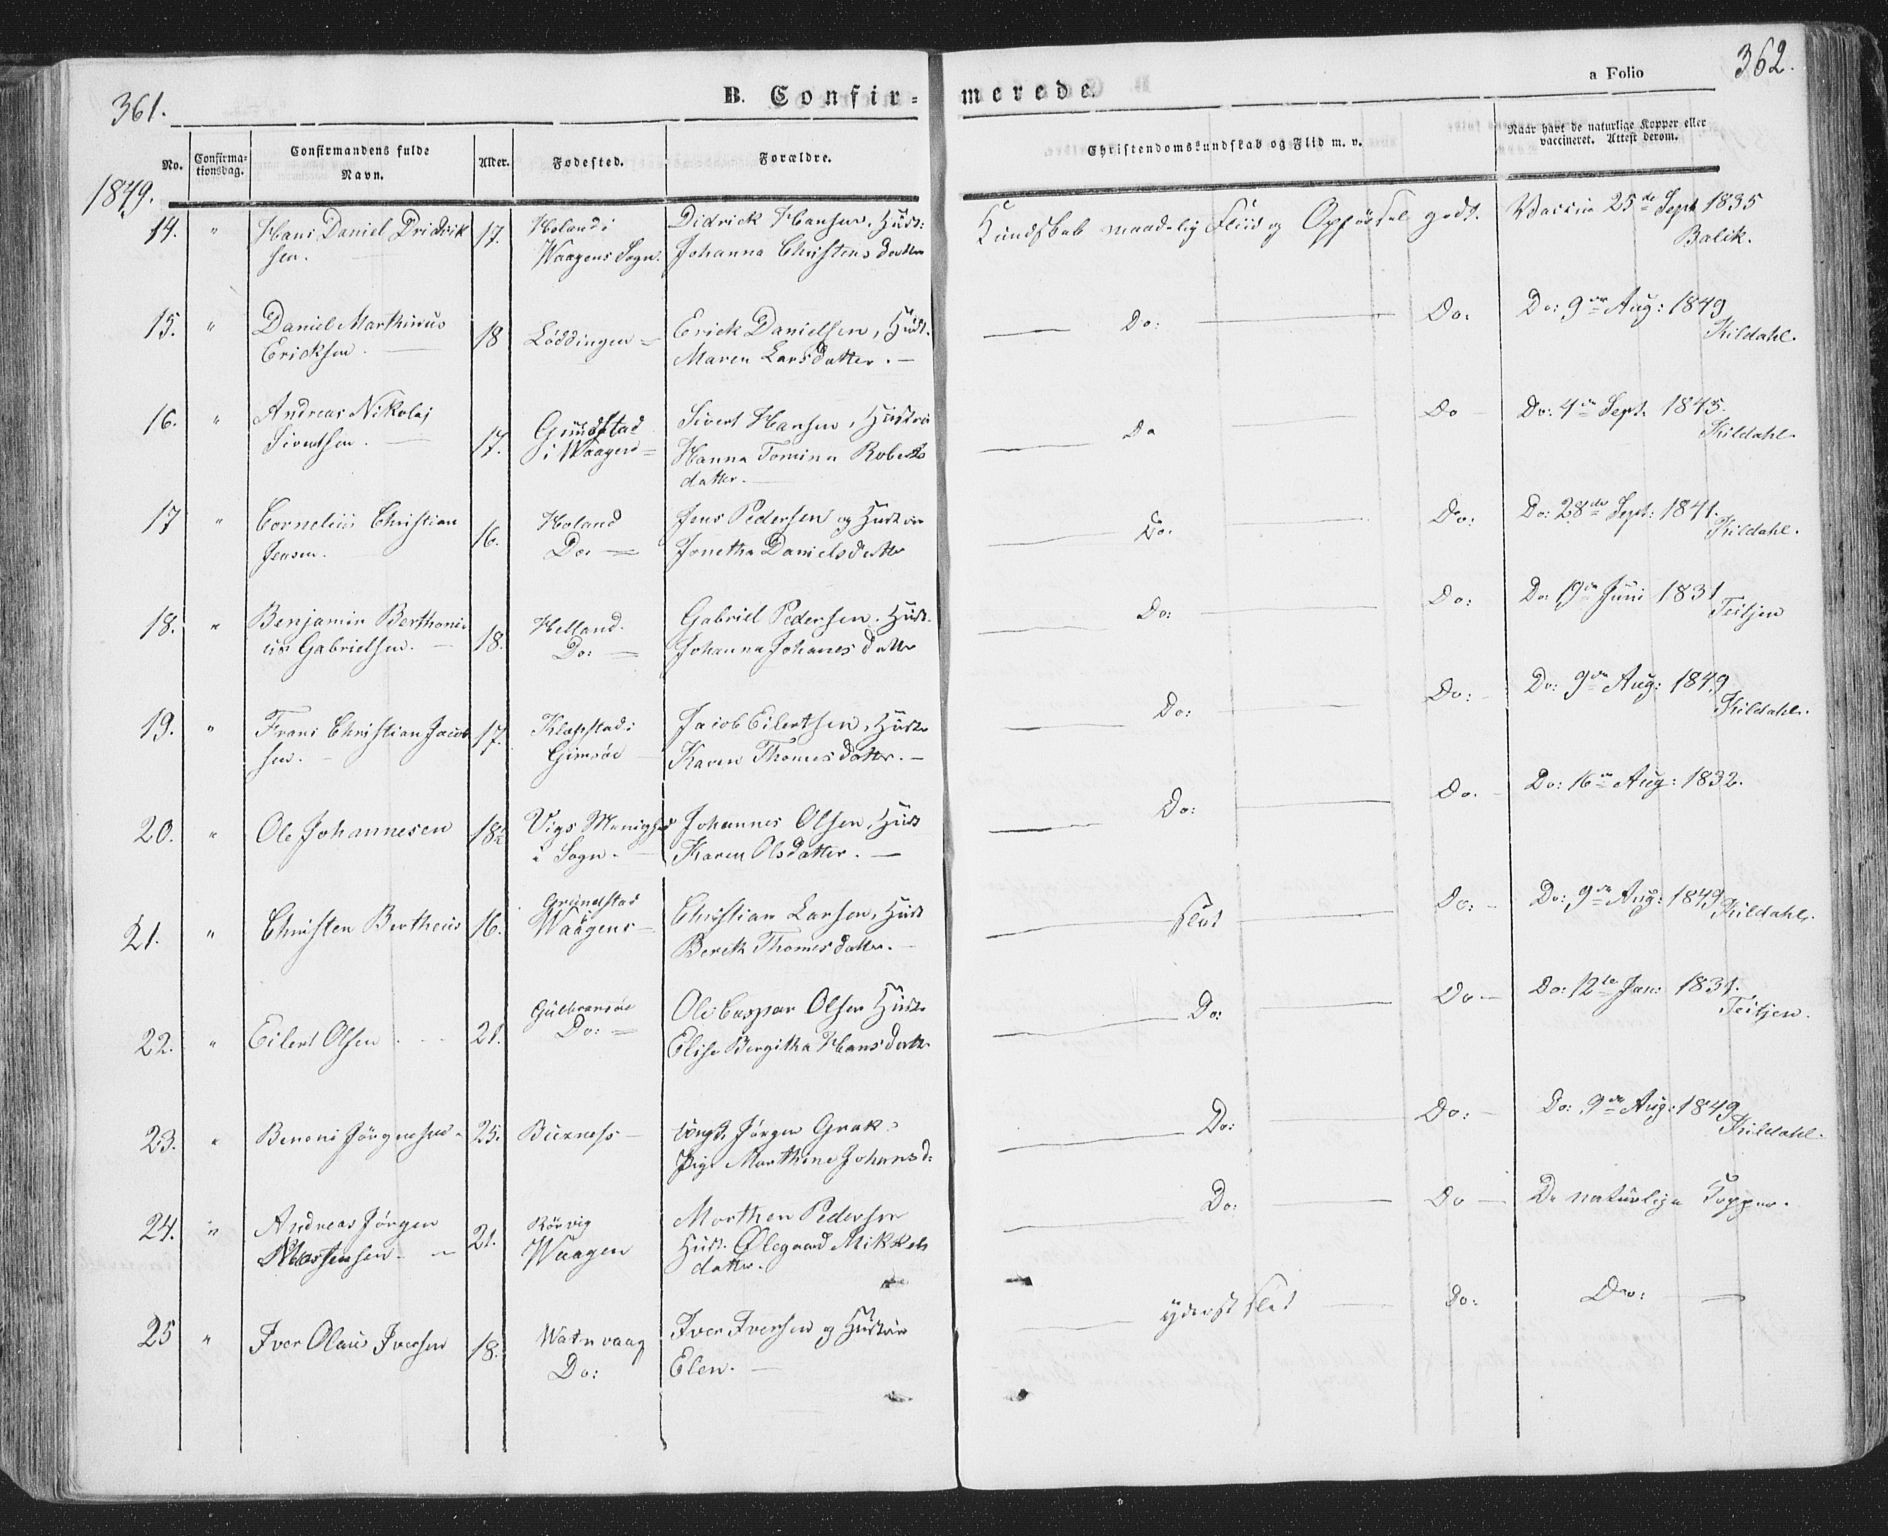 361.
B. Confir-
merede.
a Folio
362.
No.
Confirma-
tionsdag.
Confirmandens fulde
Navn.
Alder.
Fødested.
Forældre.
Christendomskundskab og Flid m. v.
Naar havt de naturlige Kopper eller
vaccineret. Attest derom.
1849.
14. " Hans Daniel Didrik 17. Holand i Didrick Hansen, Hust: Kundskab maadelig Fliid og Opførsel godt. Vaccin 25de Sept 1835
sen. Waagens Sogn. Johanna Christens datter Balik.
15. " Daniel Marthinus 18 Løddingen Erick Danielsen, Hust. Do: Do. Do: 9de Aug: 1849
Ericksen. Maren Larsdatter. Kildahl.
16. " Andreas Nikolaj 17. Grundstad Sivert Hansen, Hustrue Do Do Do: 4de Sept. 1845.
Sivertsen. i Waagen Hanna Tomina Roberts Kildahl.
datter.
17 " Cornelius Christian 16. Holand Jens Pedersen og Hustrue Do. Do: Do: 28de Sept: 1841.
Jensen. Do. Jonetha Danielsdatter Kildahl.
18. " Benjamin Berthoni- 18. Helland. Gabriel Pedersen. Hust. Do: Do: Do 19de Juni 1831
us Gabrielsen. Do: Johanna Johanes datter Teitjen
19. " Frans Christian Jacob 17. Klepstad i Jacob Eilertsen, Hustr Do: Do: Do: 9de Aug: 1849
sen. Gimsøe Karen Thomesdatter. Kildahl.
20. " Ole Johannesen 18½ Vigs Menighed Johannes Olsen, Hust Do: Do. Do: 16de Aug: 1832.
i Sogn. Karen Olsdatter.
21. " Christen Bertheus 16. Grundstad Christian Larsen, Hust Slet Do: Do: 9de Aug: 1849
Waagens Berith Thomesdatter. Kildahl.
22. " Eilert Olsen 21. Gulbransøe Ole Caspar Olsen Hustr Do: Do Do: 12te Jan: 1831.
Do: Elise Bergitha Hansdatter Teitjen.
23. " Benoni Jørgensen 25. Buxness Jørgen Grak Do: Do: Do: 9de Aug: 1849
Pige Marthine Johansd: Kildahl.
24. " Andreas Jørgen 21. Rørvig Morthen Pedersen Do: Do De naturlige Kopper.
Mortensen. Waagen Hust. Ølegaard Mikkels
datter.
25 " Iver Olaus Iversen 18. Watnvaag Iver Iversen og Hustrue yderst slet Do: Do:
Do: Elen.